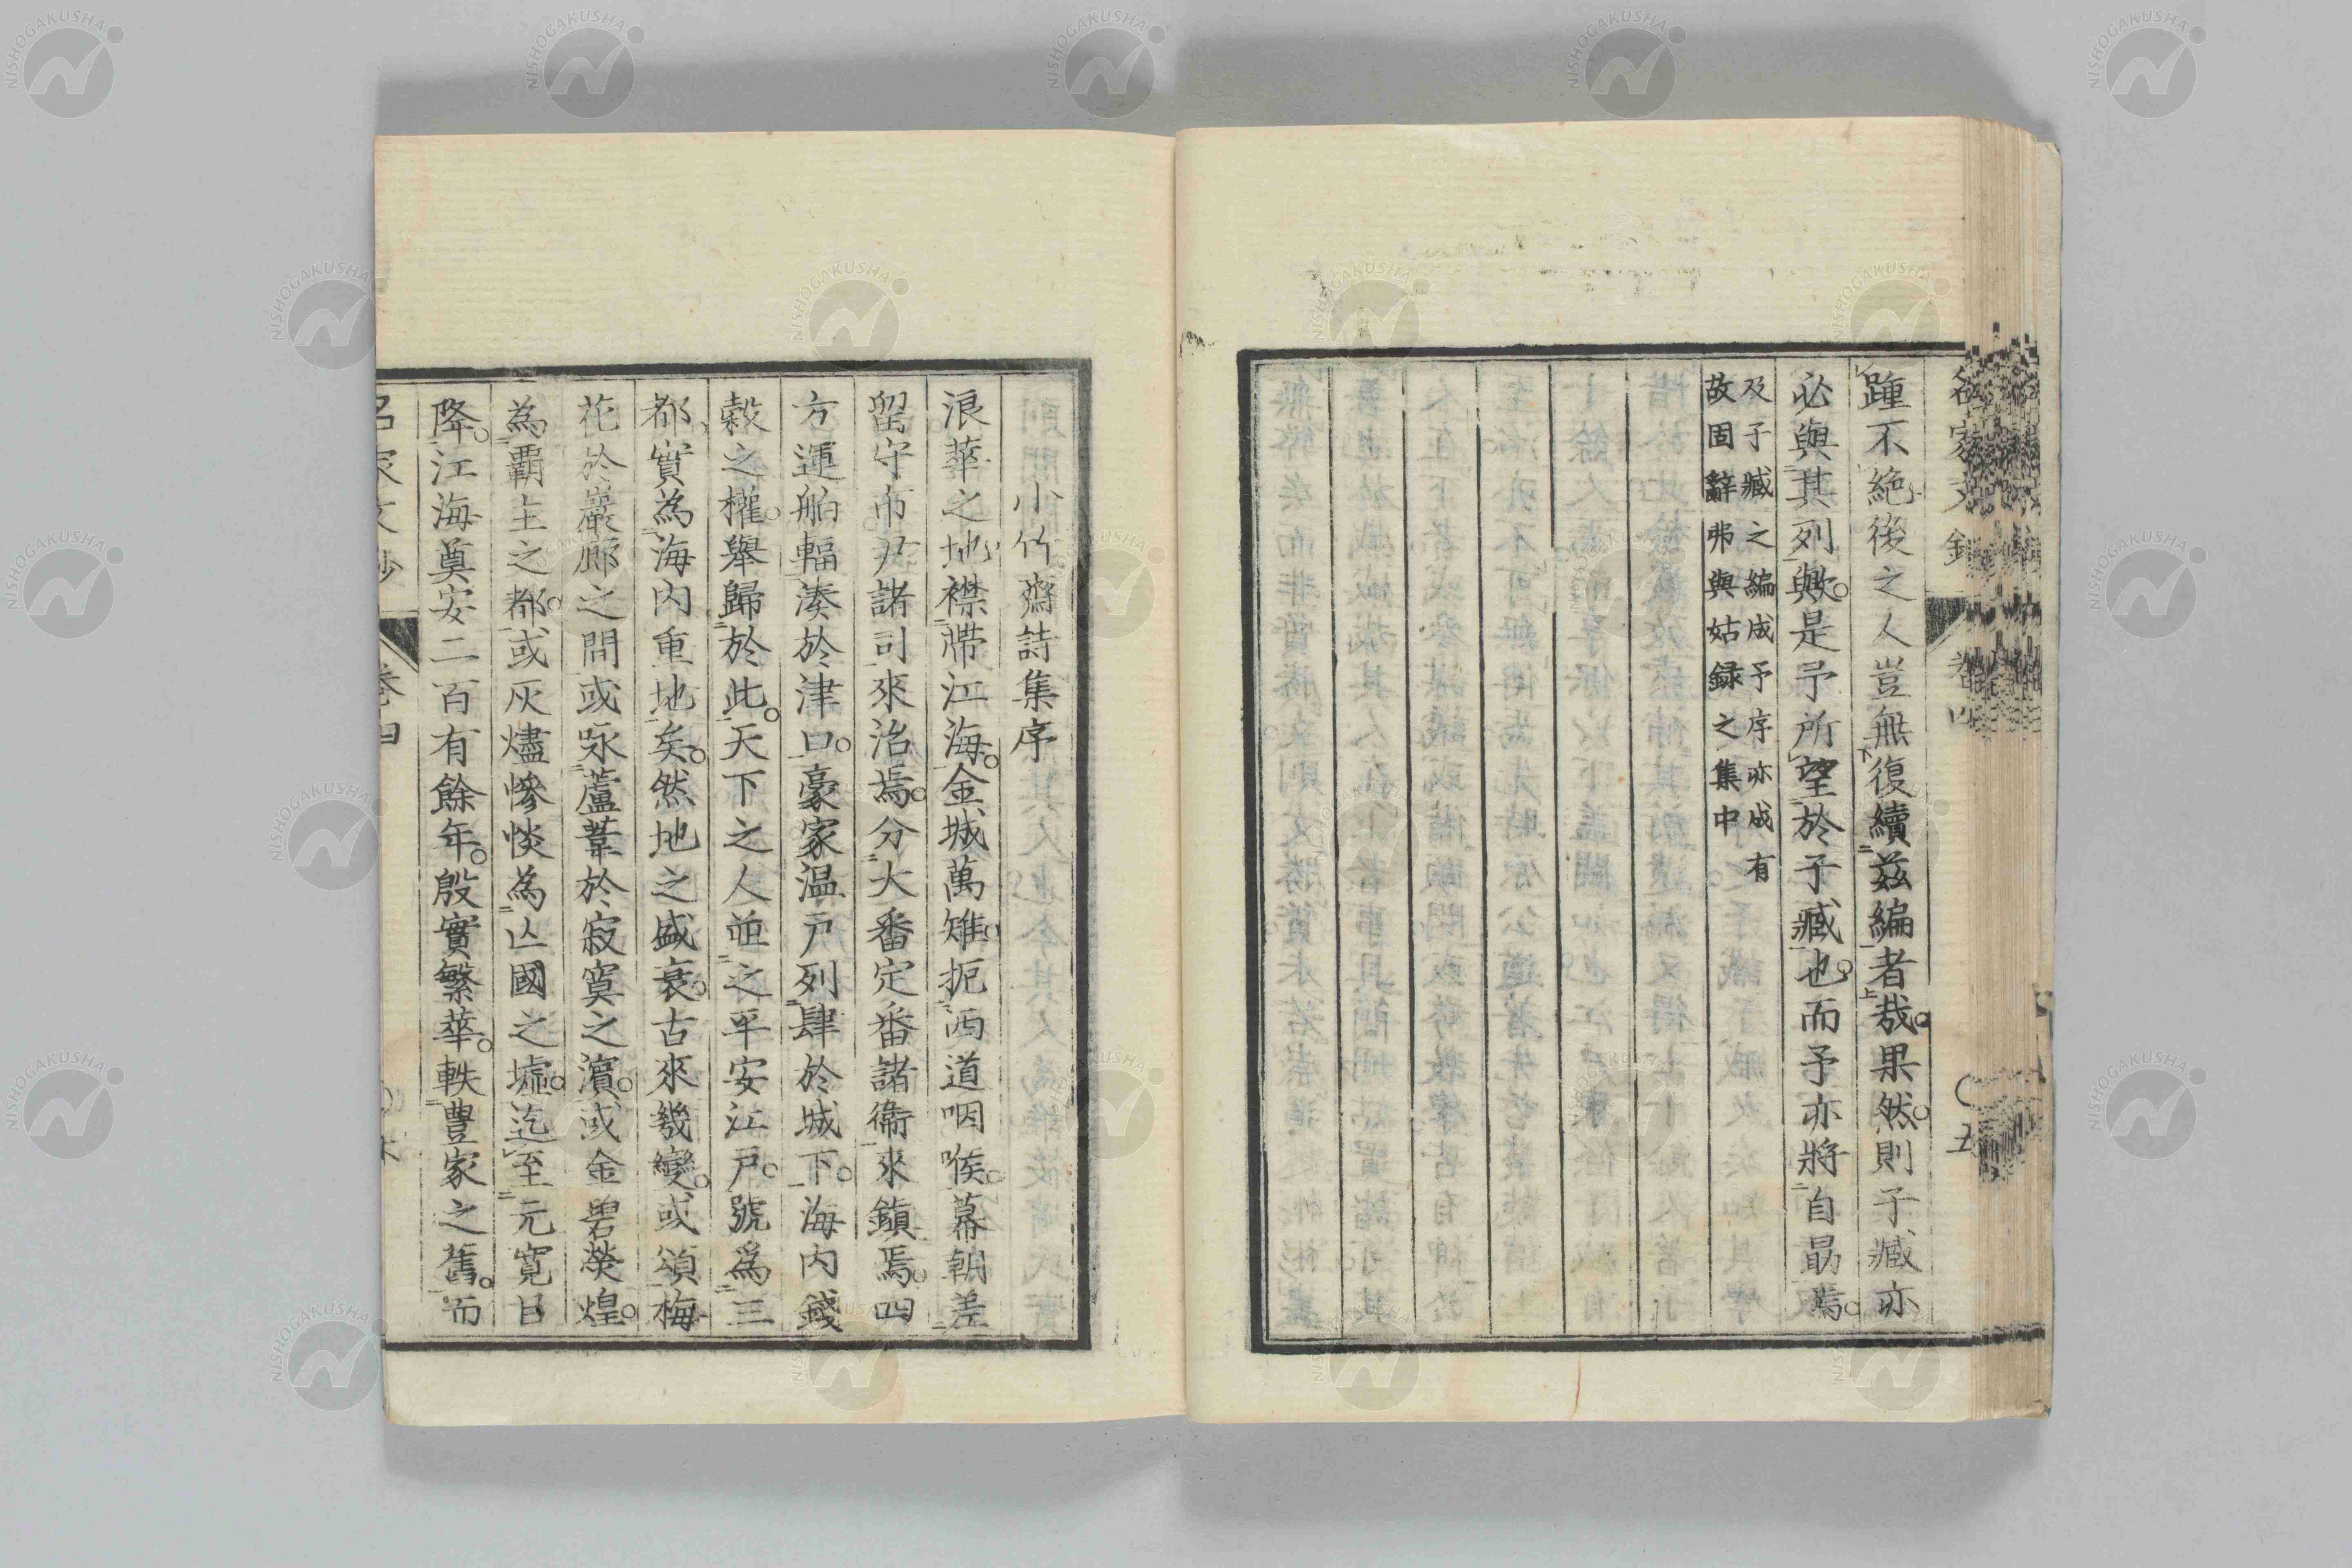 踵不絕後之人豈無復續茲編者哉。果然。則子臧亦
必與其列歟。是予所望於子臧也。而予亦將自勗焉。
及子臧之編成予序亦成有
故固辭弗與姑録之集中
小竹齋詩集序
浪華之地襟帶江海。金城萬雉。扼西道咽喉。幕朝差
留守市尹諸司來治焉。分大番定番諸衞來鎮焉。四
方運舶輻湊於津口。豪家温戸列肆於城下。海内錢
穀之權。舉歸於此。天下之人並之平安江戸。號爲三
都、實為海内重地矣。然地之盛衰。古來幾變。或頌梅
花於巖廊之間或咏蘆葦於寂寞之濱。或金碧熒煌。
為覇主之都。或灰燼慘惔為亾國之墟。迄至元寛目
降。江海奠安二百有餘年。殷實繁華。軼豊家之舊。而
名家文鈔
卷四
五
NISHOGAKUSHA